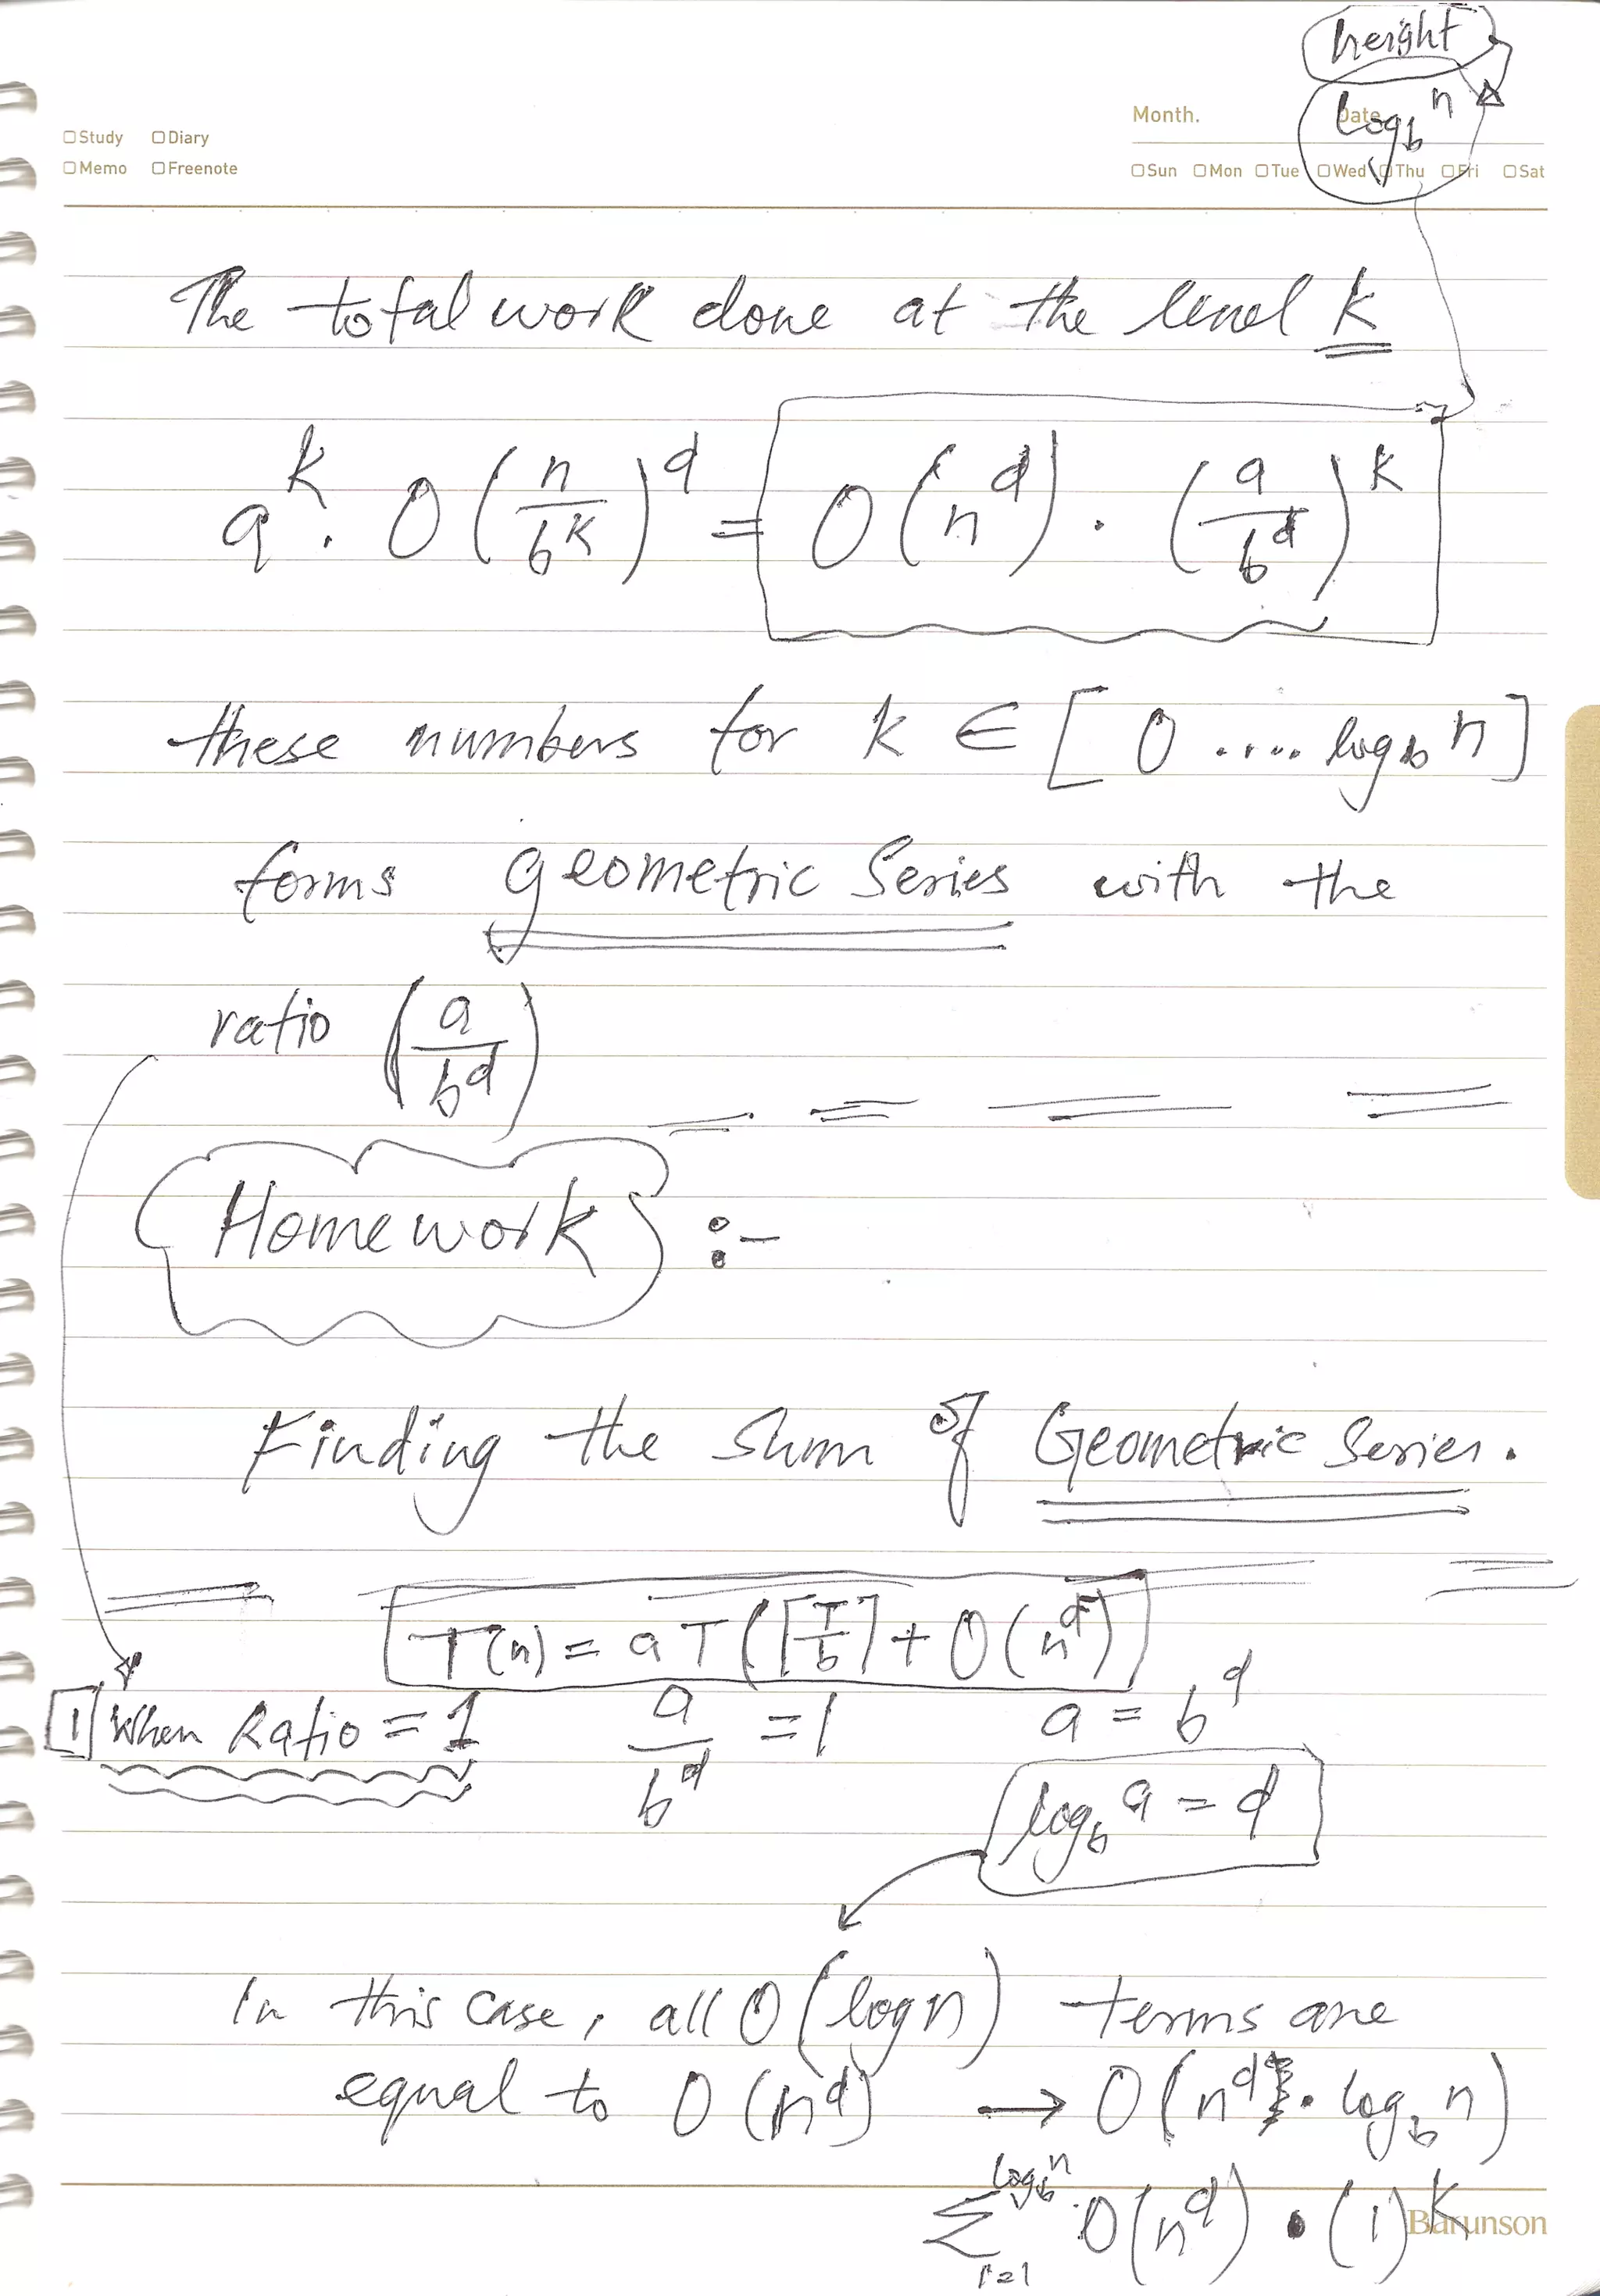 height
log_b n
Month.
Date
□ Study □ Diary
□ Memo □ Freenote
□ Sun □ Mon □ Tue □ Wed □ Thu □ Fri □ Sat
The total work done at the level k
a^k . O(n/b^k)^d = O(n^d) . (a/b^d)^k
these numbers for k ∈ [ 0 ..... log_b n ]
forms geometric Series with the
ratio (a/b^d)
Homework :-
Finding the sum of Geometric Series.
T(n) = a T(⌈T/b⌉ + O(n^d)
1 When Ratio = 1 a/b^d = 1 a = b^d
log_b a = d
In this case, all O(log n) terms are
equal to O(n^d) → O(n^d . log_b n)
∑_{i=1}^{log_b n} O(n^d) • (1)^k
Barunson